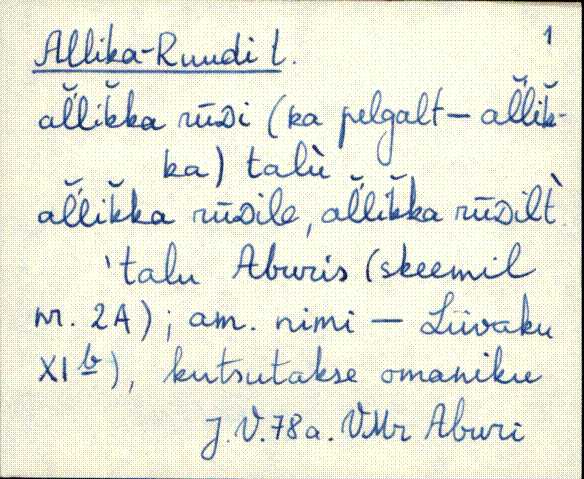 1
Allika-Ruudi t.
al̆l'ik̆ka rūᴅi (ka pelgalt – al̆l'ik̆-
ka) talù
al̆l'ik̆ka rūᴅile, al̆l'ik̆ka rūᴅilt̀
'talu Aburis (skeemil
nr. 2A); am. nimi – Liivaku
XI b), kutsutakse omaniku
J.V.78a. VMr Aburi